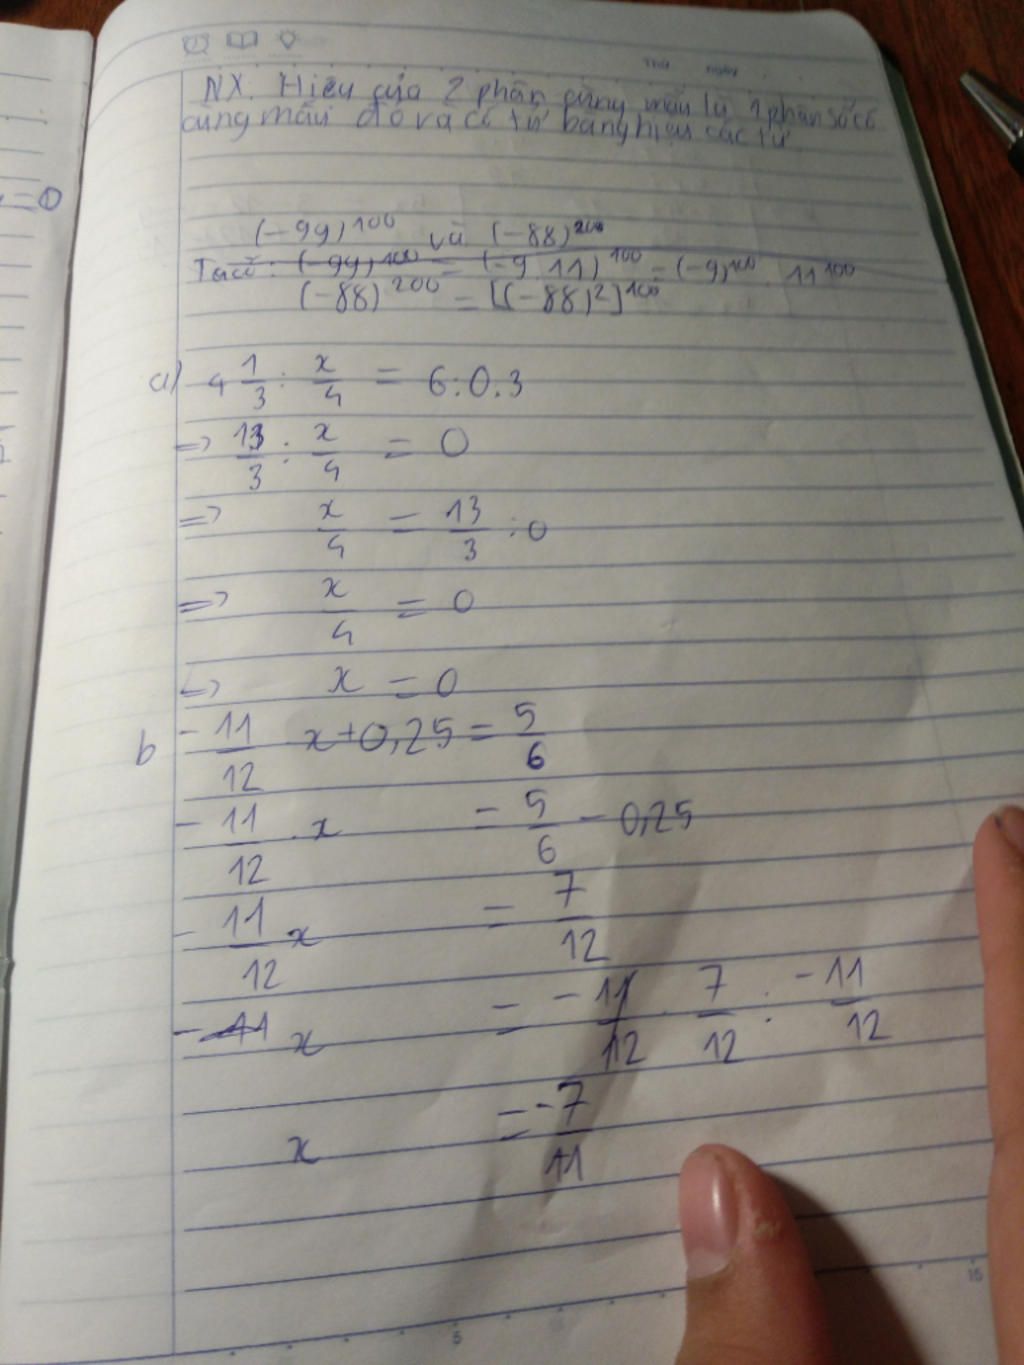 Thứ ngày
NX. Hiệu của 2 phân cùng mẫu là 1 phân số có
cùng mẫu đó và có tử bằng hiệu các tử
= 0
(-99)^100 và (-88)^200
Ta có: (-99)^100 = (-9 11)^100 = (-9)^100 . 11^100
(-88)^200 = [(-88)^2]^100
a) 4 1/3 : x/4 = 6:0.3
=> 13/3 : x/4 = 0
=> x/4 = 13/3 : 0
=> x/4 = 0
=> x = 0
b -11/12 x+0,25 = 5/6
-11/12 . x = 5/6 - 0,25
-11/12 x = 7/12
x = 7/12 : -11/12
x = -7/11
5
15